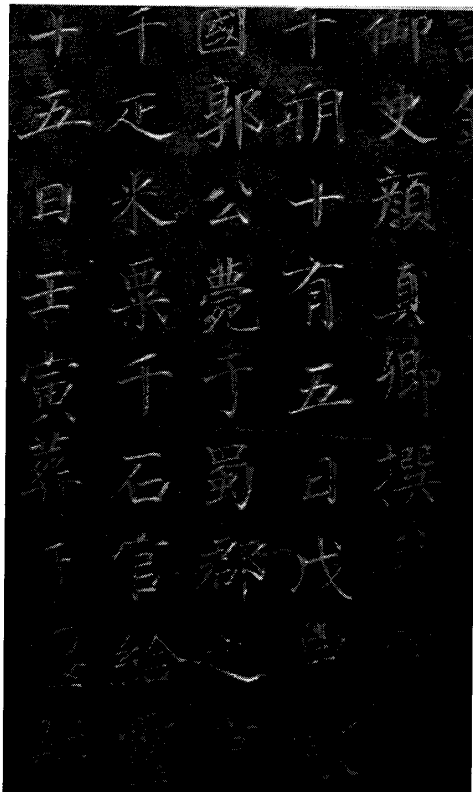 御史顏真卿撰
午朔十有五日戊
國郭公薨于蜀郡之
千疋米粟千石官給靈
十五日壬寅葬于